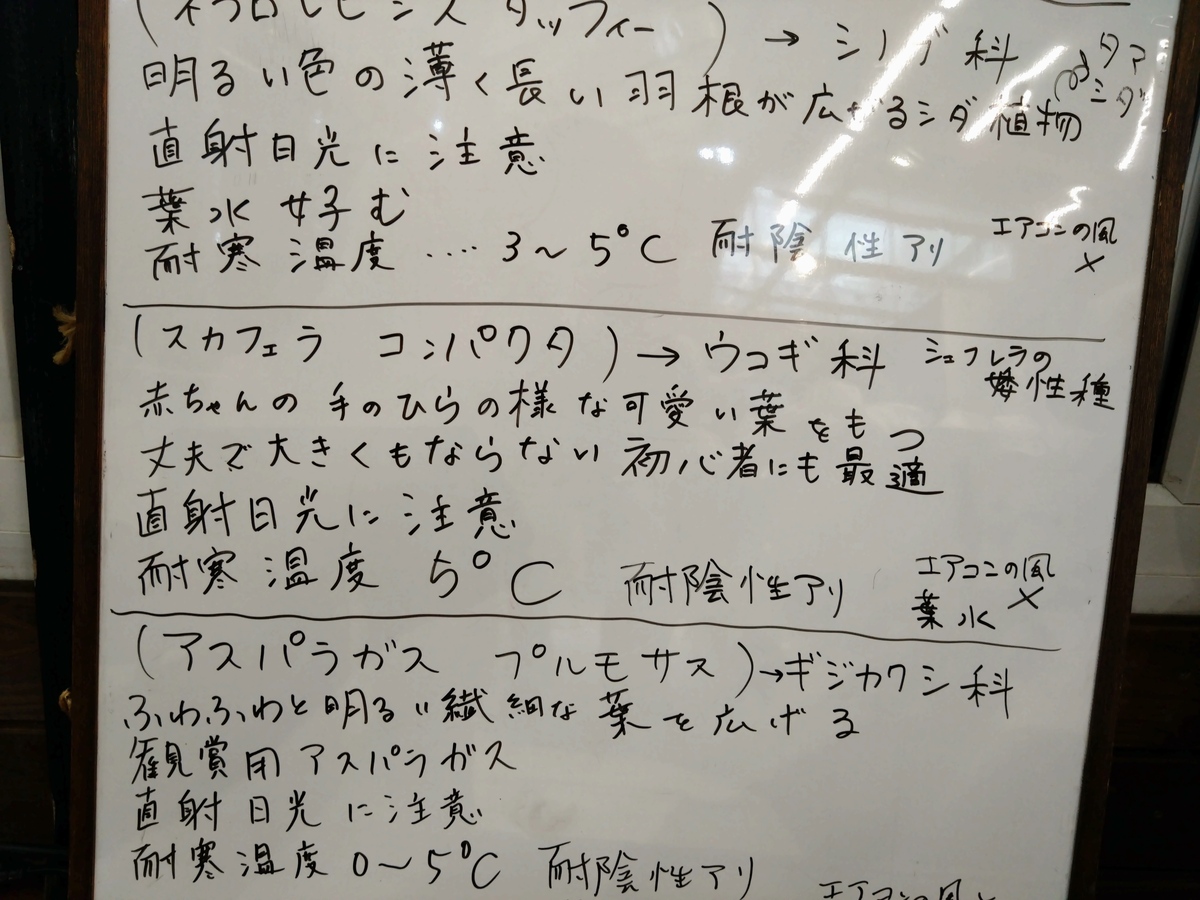 (ネフロレピシス ダッフィー) → シノブ科
タマシダ
明るい色の薄く長い羽根が広がるシダ植物
直射日光に注意
葉水好む
耐寒温度 ‥‥ 3～5°C 耐陰性アリ
エアコンの風
×
(スカフェラ コンパクタ) → ウコギ科
シェフレラの
矮性種
赤ちゃんの手のひらの様な可愛い葉をもつ
丈夫で大きくもならない 初心者にも最適
直射日光に注意
耐寒温度 5°C 耐陰性アリ
エアコンの風
×
葉水
(アスパラガス プルモサス) → ギジカクシ科
ふわふわと明るい繊細な葉を広げる
観賞用アスパラガス
直射日光に注意
耐寒温度 0～5°C 耐陰性アリ
エアコンの風×